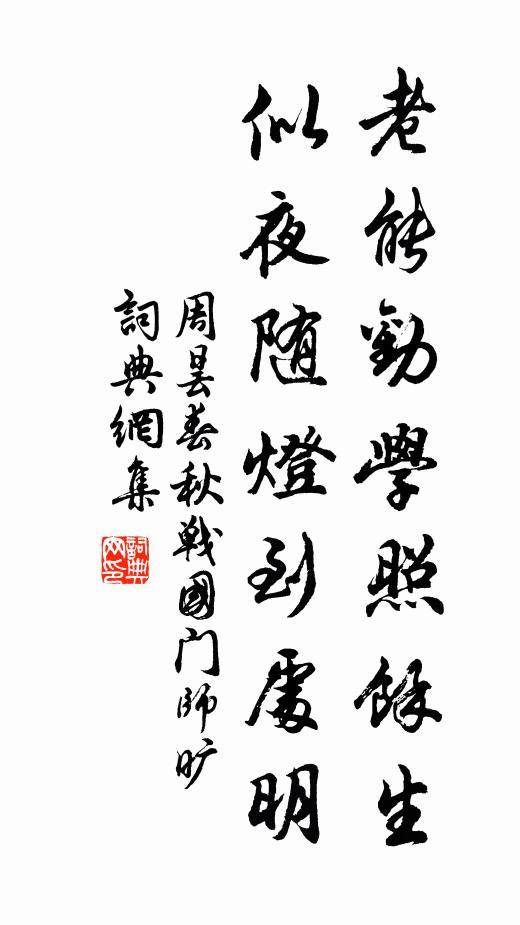 老能勸學照餘生
似夜随燈到處明
周昙春秋戰國门師旷
詞典網集
詞典网印